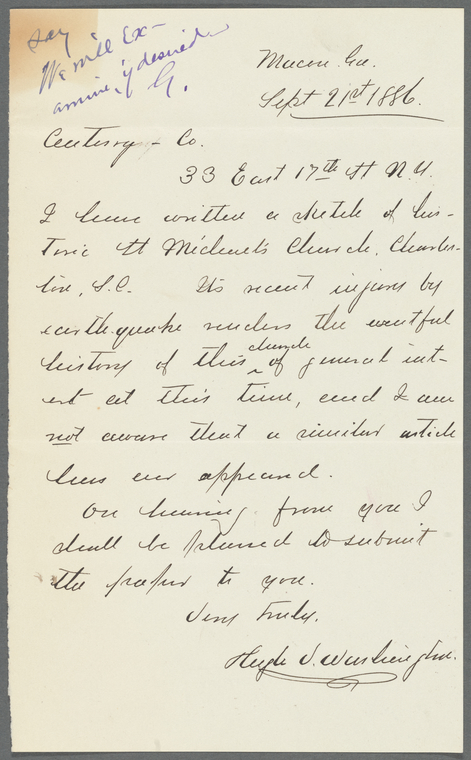 say
We will Ex-
amine, if desired
G.
Macon. Ga.
Sept 21st 1886.
Century - Co.
33 East 17th St N.Y.
I have written a sketch of his-
toric St Michael's Church, Charles-
ton, S.C. Its recent injury by
earthquake renders the eventful
history of this church of general int-
erest at this time, and I am
not aware that a similar article
has ever appeared.
On hearing from you I
shall be pleased to submit
the paper to you.
Very truly,
Hugh V. Washington.